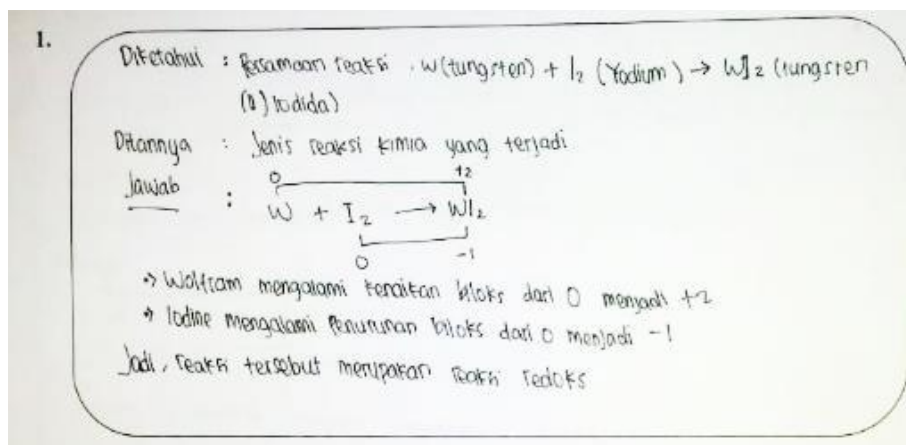 1.
Diketahui : Persamaan reaksi . W (tungsten) + I₂ (Yodium) → WI₂ (tungsten
(II) Iodida)
Ditannya : Jenis reaksi kimia yang terjadi
Jawab :
0 +2
W + I₂ → WI₂
0 -1
•> Wolfram mengalami kenaikan biloks dari 0 menjadi +2
•> Iodine mengalami Penurunan biloks dari 0 menjadi -1
Jadi, reaksi tersebut merupakan reaksi redoks